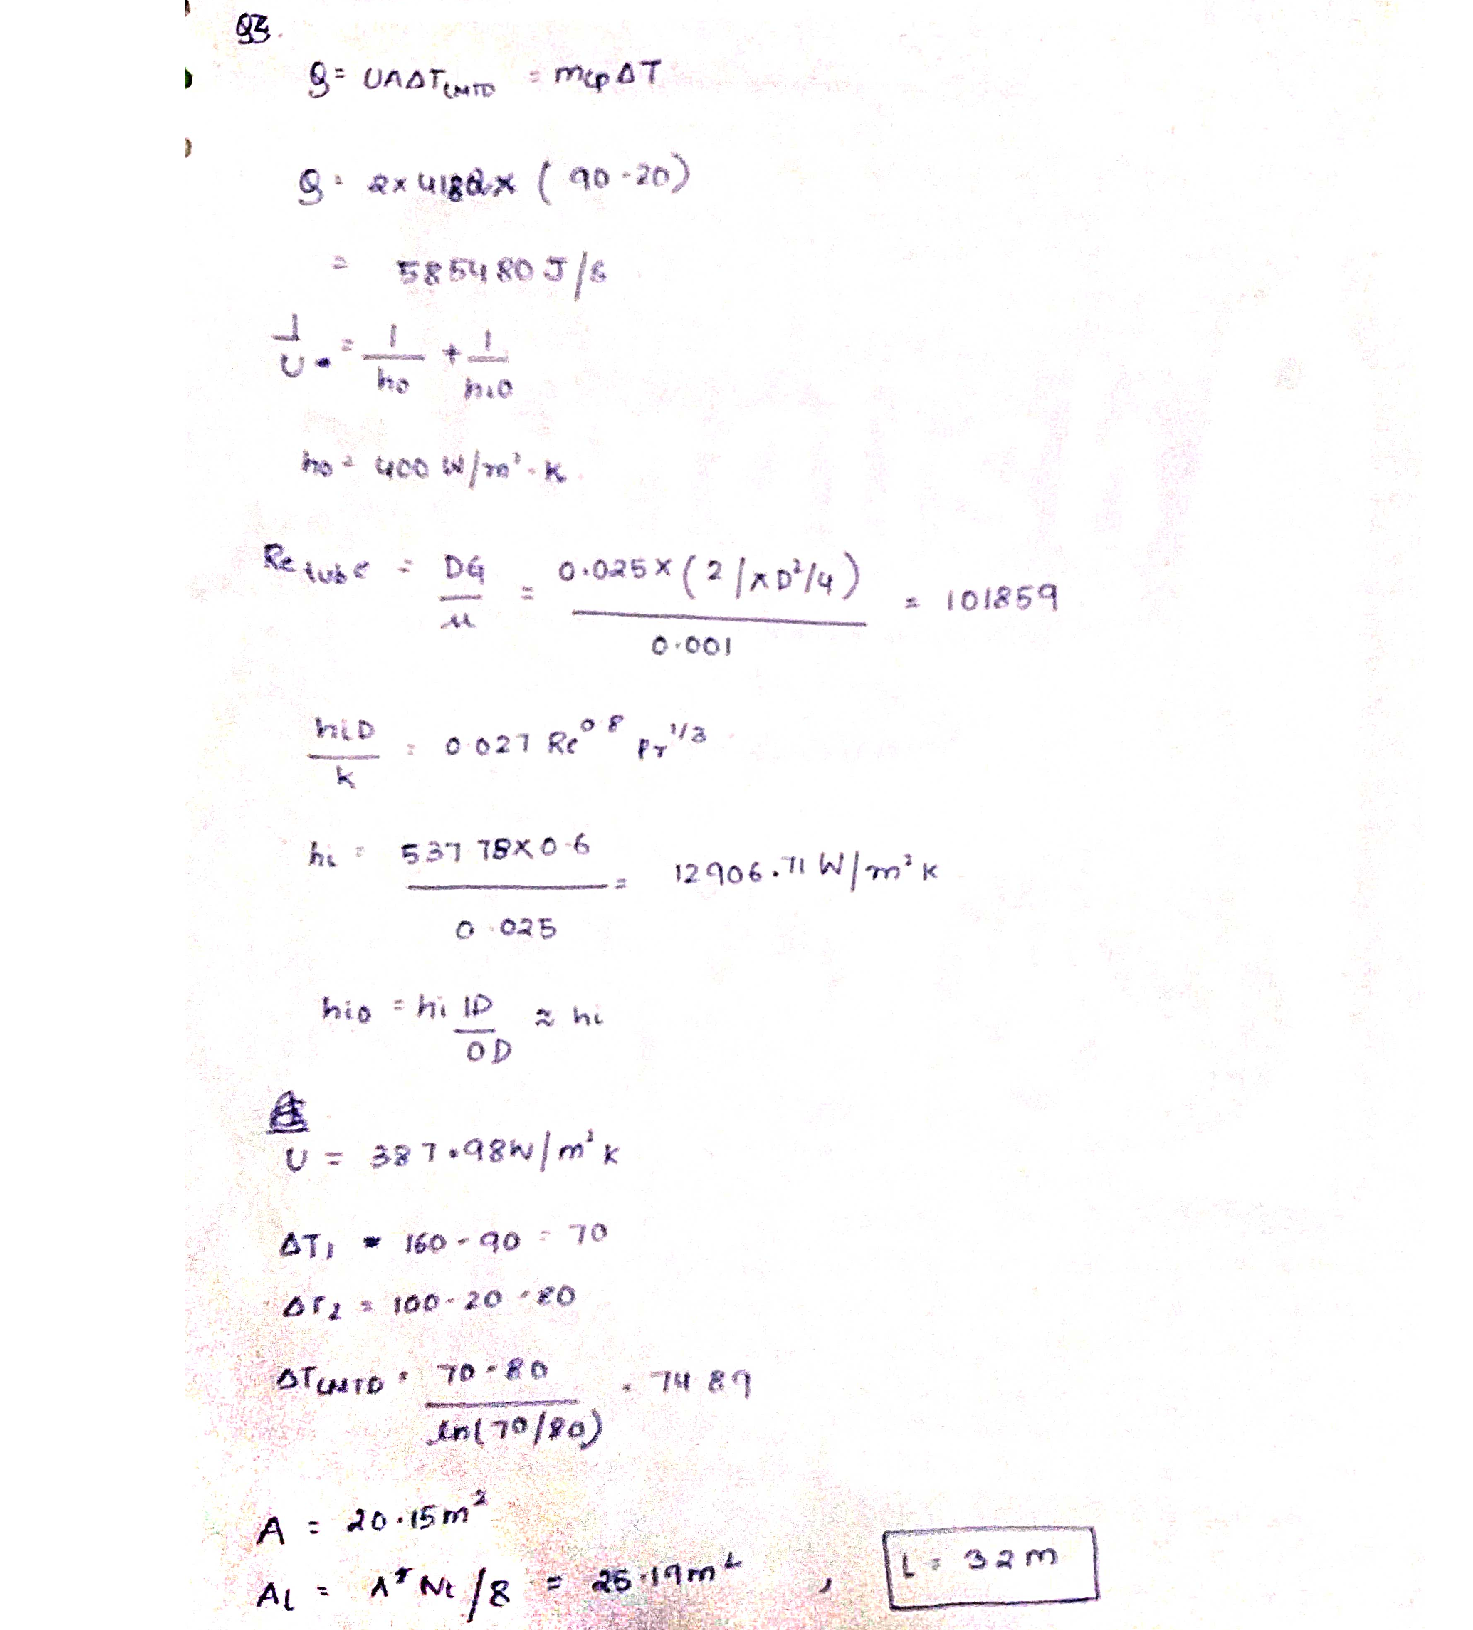 Q3.
Q = UAΔT_LMTD = mcpΔT
Q = 2×4182× (90-20)
= 585480 J/s
1/U = 1/ho + 1/hio
ho = 400 W/m²-K
Re tube = DG/μ = 0.025×(2/πD²/4)/0.001 = 101859
hiD/k = 0.027 Re^0.8 Pr^1/3
hi = 537.78×0.6/0.025 = 12906.71 W/m²K
hio = hi ID/OD ≈ hi
U = 387.98W/m²K
ΔT1 = 160-90 = 70
ΔT2 = 100-20 = 80
ΔT_LMTD = 70-80/ln(70/80) = 74.89
A = 20.15m²
AL = Nt/8 = 25.19m² , L = 32m